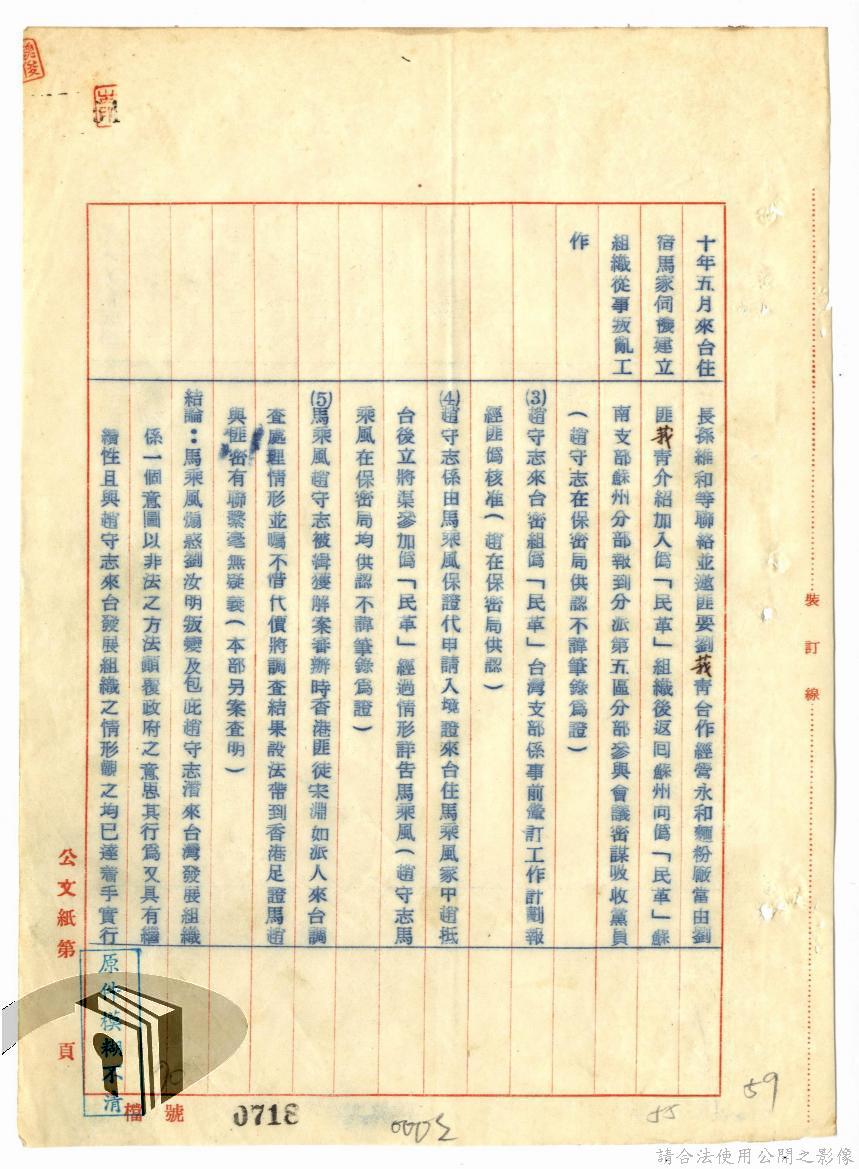 十年五月來台住
宿馬家伺機建立
組織從事叛亂工
作
長孫維和等聯絡並邀匪要劉莪青合作經營永和麵粉廠當由劉
匪莪青介紹加入僞「民革」組織後返回蘇州向僞「民革」蘇
南支部蘇州分部報到分派第五區分部參與會議密謀吸收黨員
(趙守志在保密局供認不諱筆錄爲證)
(3)趙守志來台密組僞「民革」台灣支部係事前釐訂工作計劃報
經匪僞核准(趙在保密局供認)
(4)趙守志係由馬乘風保證代申請入境證來台住馬乘風家中趙抵
台後立將渠參加僞「民革」經過情形詳告馬乘風(趙守志馬
乘風在保密局均供認不諱筆錄爲證)
(5)馬乘風趙守志被緝獲解案審辦時香港匪徒宋淵如派人來台調
查處理情形並囑不惜代價將調查結果設法帶到香港足證馬趙
與匪密有聯繫毫無疑義(本部另案查明)
結論:馬乘風煽惑劉汝明叛變及包庇趙守志潛來台灣發展組織
係一個意圖以非法之方法顛覆政府之意思其行爲又具有繼
續性且與趙守志來台發展組織之情形觀之均已達着手實行
裝訂線
公文紙第 頁
檔號
原件模糊不清
0718
59
55
請合法使用公開之影像